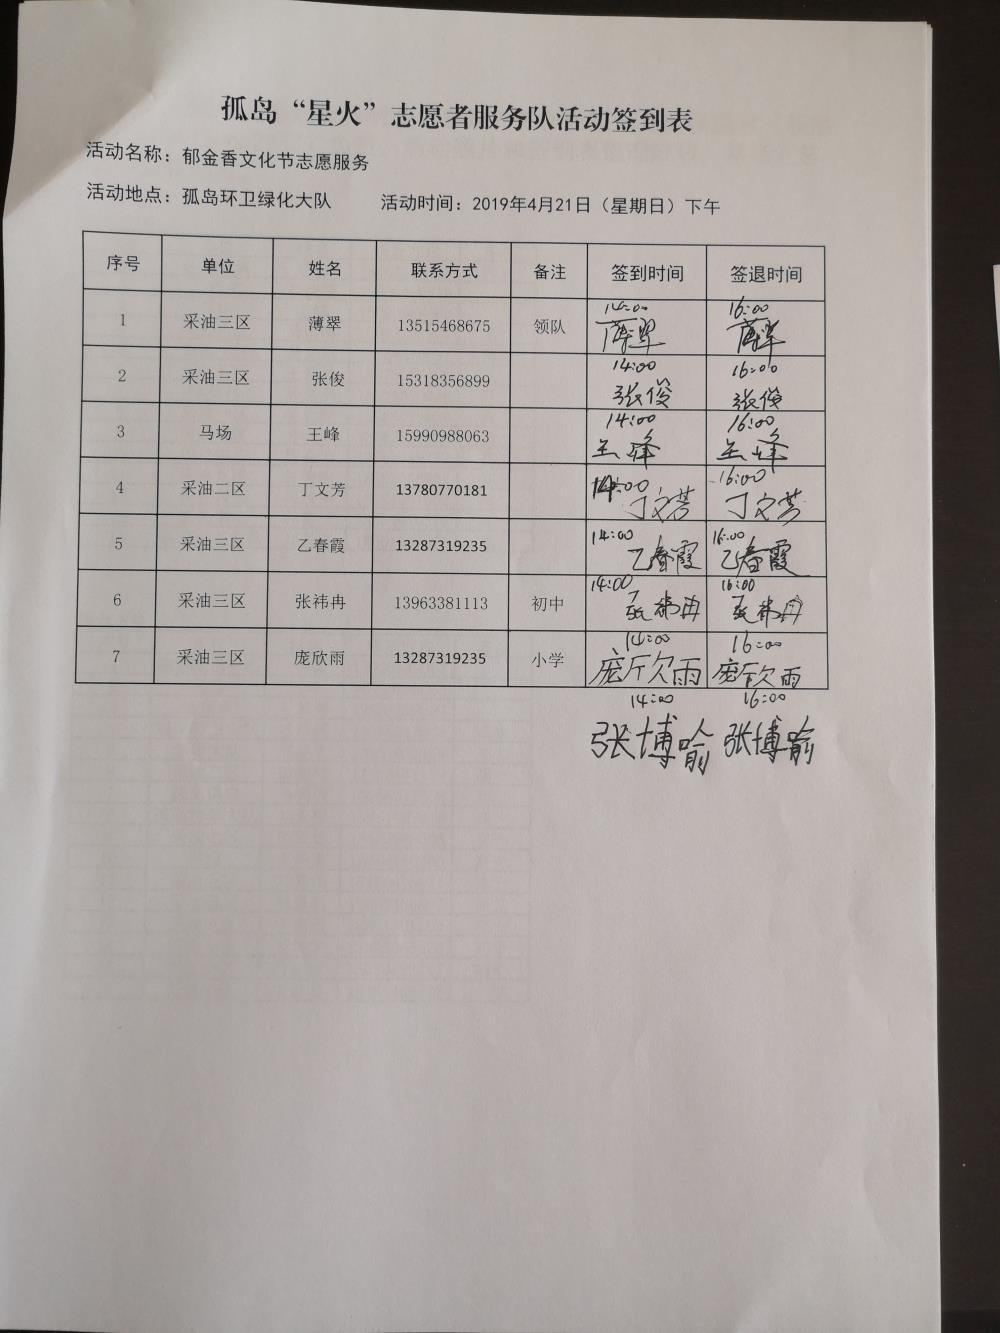 孤岛“星火”志愿者服务队活动签到表
活动名称：郁金香文化节志愿服务
活动地点：孤岛环卫绿化大队 活动时间：2019年4月21日（星期日）下午
序号 单位 姓名 联系方式 备注 签到时间 签退时间
14:00 16:00
1 采油三区 薄翠 13515468675 领队 薄翠 薄翠
14:00 16:00
2 采油三区 张俊 15318356899 张俊 张俊
14:00 16:00
3 马场 王峰 15990988063 王峰 王峰
14:00 16:00
4 采油二区 丁文芳 13780770181 丁文芳 丁文芳
14:00 16:00
5 采油三区 乙春霞 13287319235 乙春霞 乙春霞
14:00 16:00
6 采油三区 张祎冉 13963381113 初中 张祎冉 张祎冉
14:00 16:00
7 采油三区 庞欣雨 13287319235 小学 庞欣雨 庞欣雨
14:00 16:00
张博喻 张博喻